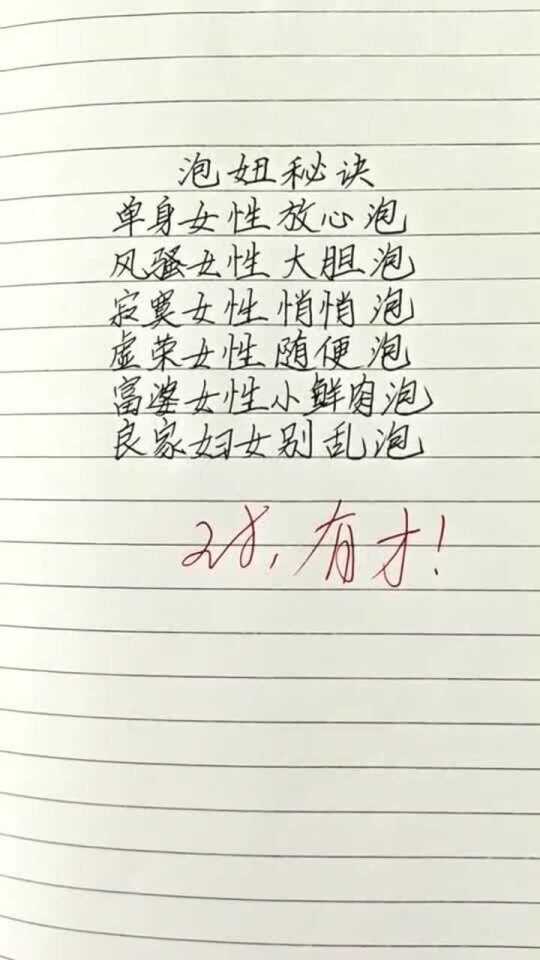 泡妞秘诀
单身女性放心泡
风骚女性大胆泡
寂寞女性悄悄泡
虚荣女性随便泡
富婆女性小鲜肉泡
良家妇女别乱泡
有才!